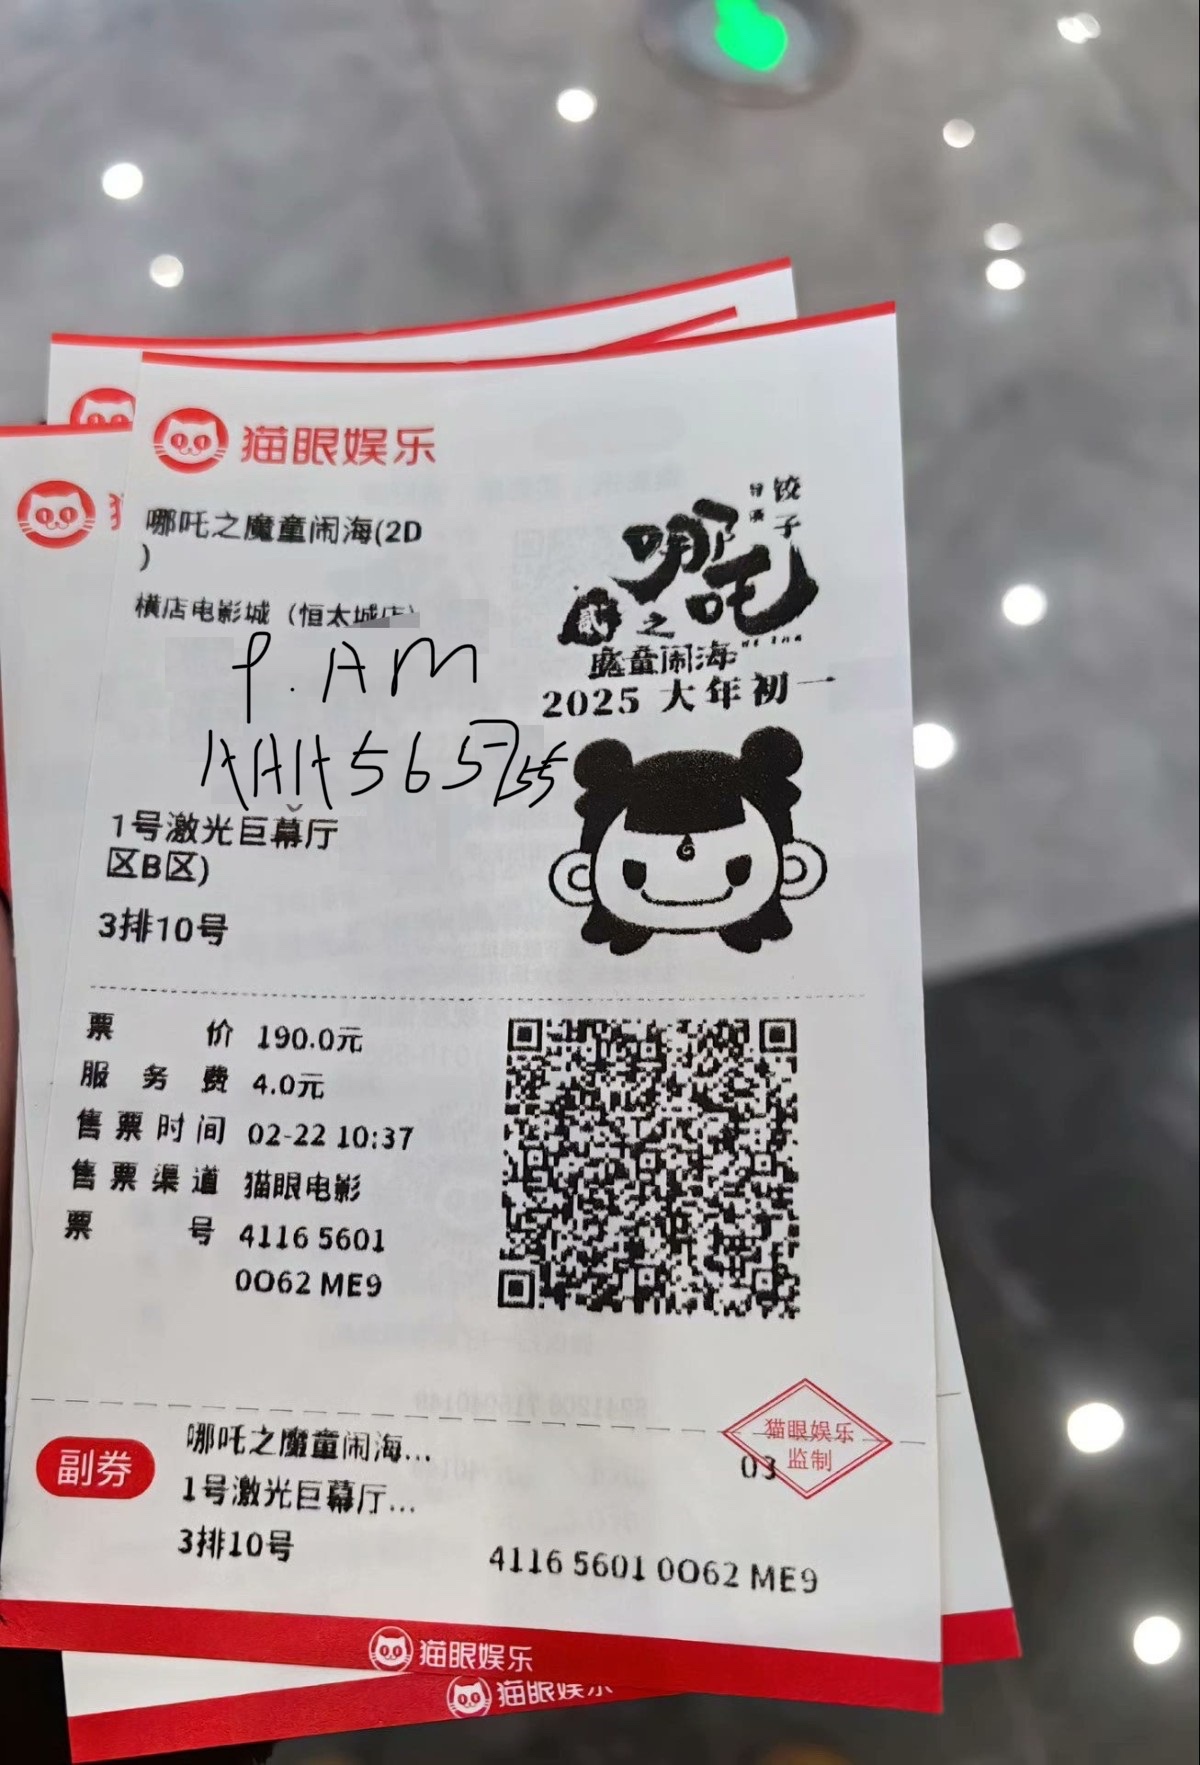 猫眼娱乐
哪吒之魔童闹海(2D
)
横店电影城（恒太城店）
P.AM
AAA565755
1号激光巨幕厅
区B区)
3排10号
导演
饺子
哪吒
贰
之
魔童闹海
2025 大年初一
票价 190.0元
服务费 4.0元
售票时间 02-22 10:37
售票渠道 猫眼电影
票号 4116 5601
0O62 ME9
副券
哪吒之魔童闹海...
1号激光巨幕厅...
3排10号
03
猫眼娱乐
监制
4116 5601 0O62 ME9
猫眼娱乐
猫眼娱乐